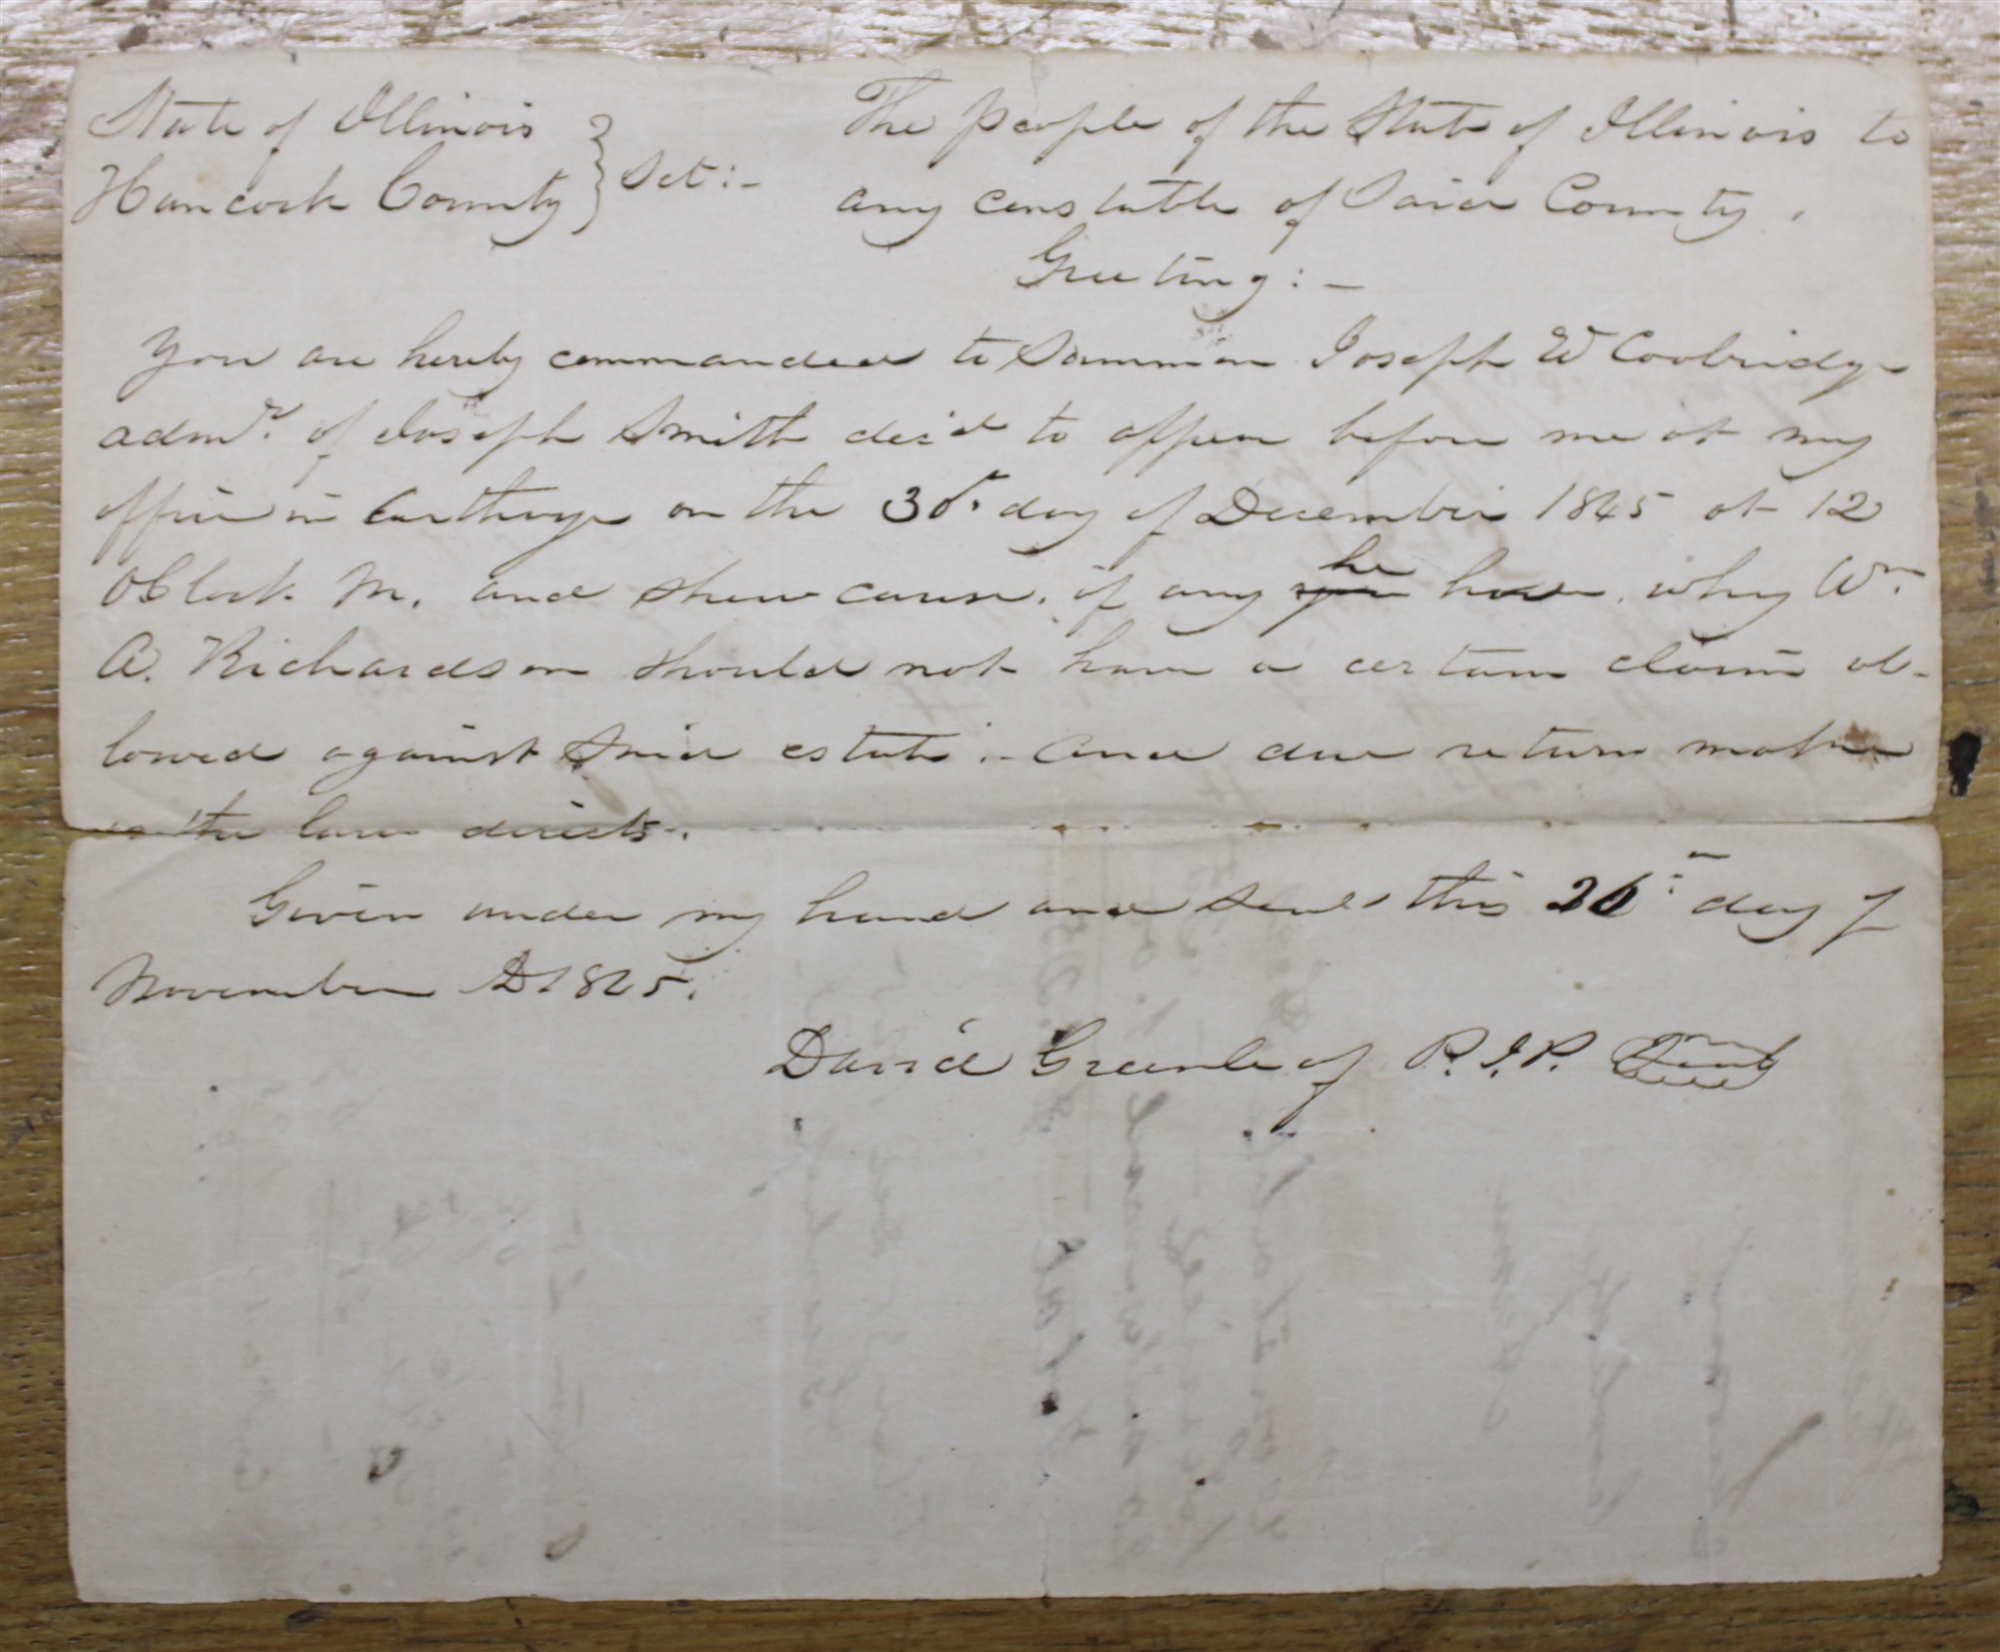 State of Illinois } The people of the State of Illinois to
Hancock County } Sct:- any constable of Said County,
Greeting:-
You are hereby commanded to Summon Joseph W Coolridge
admr. of Joseph Smith dec'd to appear before me at my
office in Carthage on the 30th day of December 1845 at 12
OClock M. and shew cause, if any he have, why Wm.
A. Richardson should not have a certain claim al-
lowed against Said estate.- And due return make
as the law directs.
Given under my hand and Seal this 26th day of
November AD 1845.
David Greenleaf P.J.P. Seal